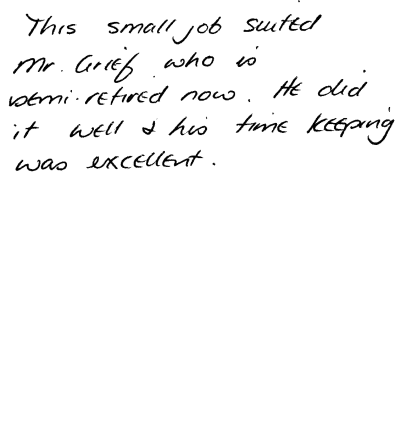 This small job suited
Mr. Grief who is
semi-retired now. He did
it well & his time keeping
was excellent.